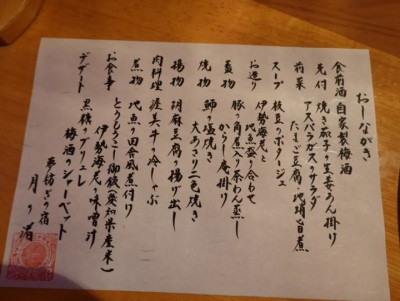 おしながき
食前酒 自家製梅酒
先付 焼き茄子の生姜あん掛け
アスパラガスのサラダ
前菜 たまご豆腐・地蛸旨煮
スープ 枝豆のポタージュ
お造り 伊勢海老と
地魚盛り合わせ
蒸物 豚の角煮入り茶わん蒸し
からし庵掛け
焼物 鰤の塩焼き
大あさり二色焼き
揚物 胡麻豆腐の揚げ出し
肉料理 渥美牛の冷しゃぶ
煮物 地魚の田舎風煮付け
お食事 とうもろこし御飯(愛知県産米)
伊勢海老の味噌汁
デザート 黒糖のブリュレ
梅酒のシャーベット
夢紡ぎの宿
月の渚